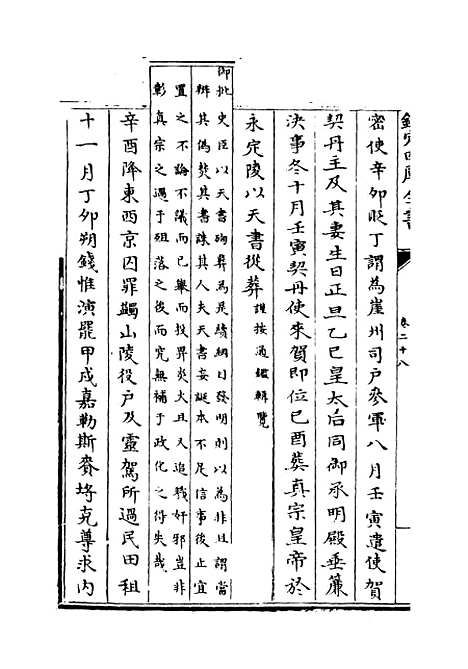 欽定四庫全書
卷二十八
密使辛卯貶丁謂為崖州司戶參軍八月壬寅遣使賀
契丹主及其妻生日正旦乙巳皇太后同御承明殿垂簾
決事冬十月壬寅契丹使來賀即位已酉葬真宗皇帝於
永定陵以天書從葬謹按通鑑輯覽
御批史臣以天書殉葬為是續綱目發明則以為非且謂當
辨其偽焚其書誅其人夫天書妄誕本不足信事後止宜
置之不論不議而已舉而投畀炎火且又追戮奸邪豈非
彰真宗之過于殂落之後而究無補于政化之得失哉
辛酉降東西京囚罪蠲山陵役戶及靈駕所過民田租
十一月丁卯朔錢惟演罷甲戌嘉勒斯賚埒克尊求內